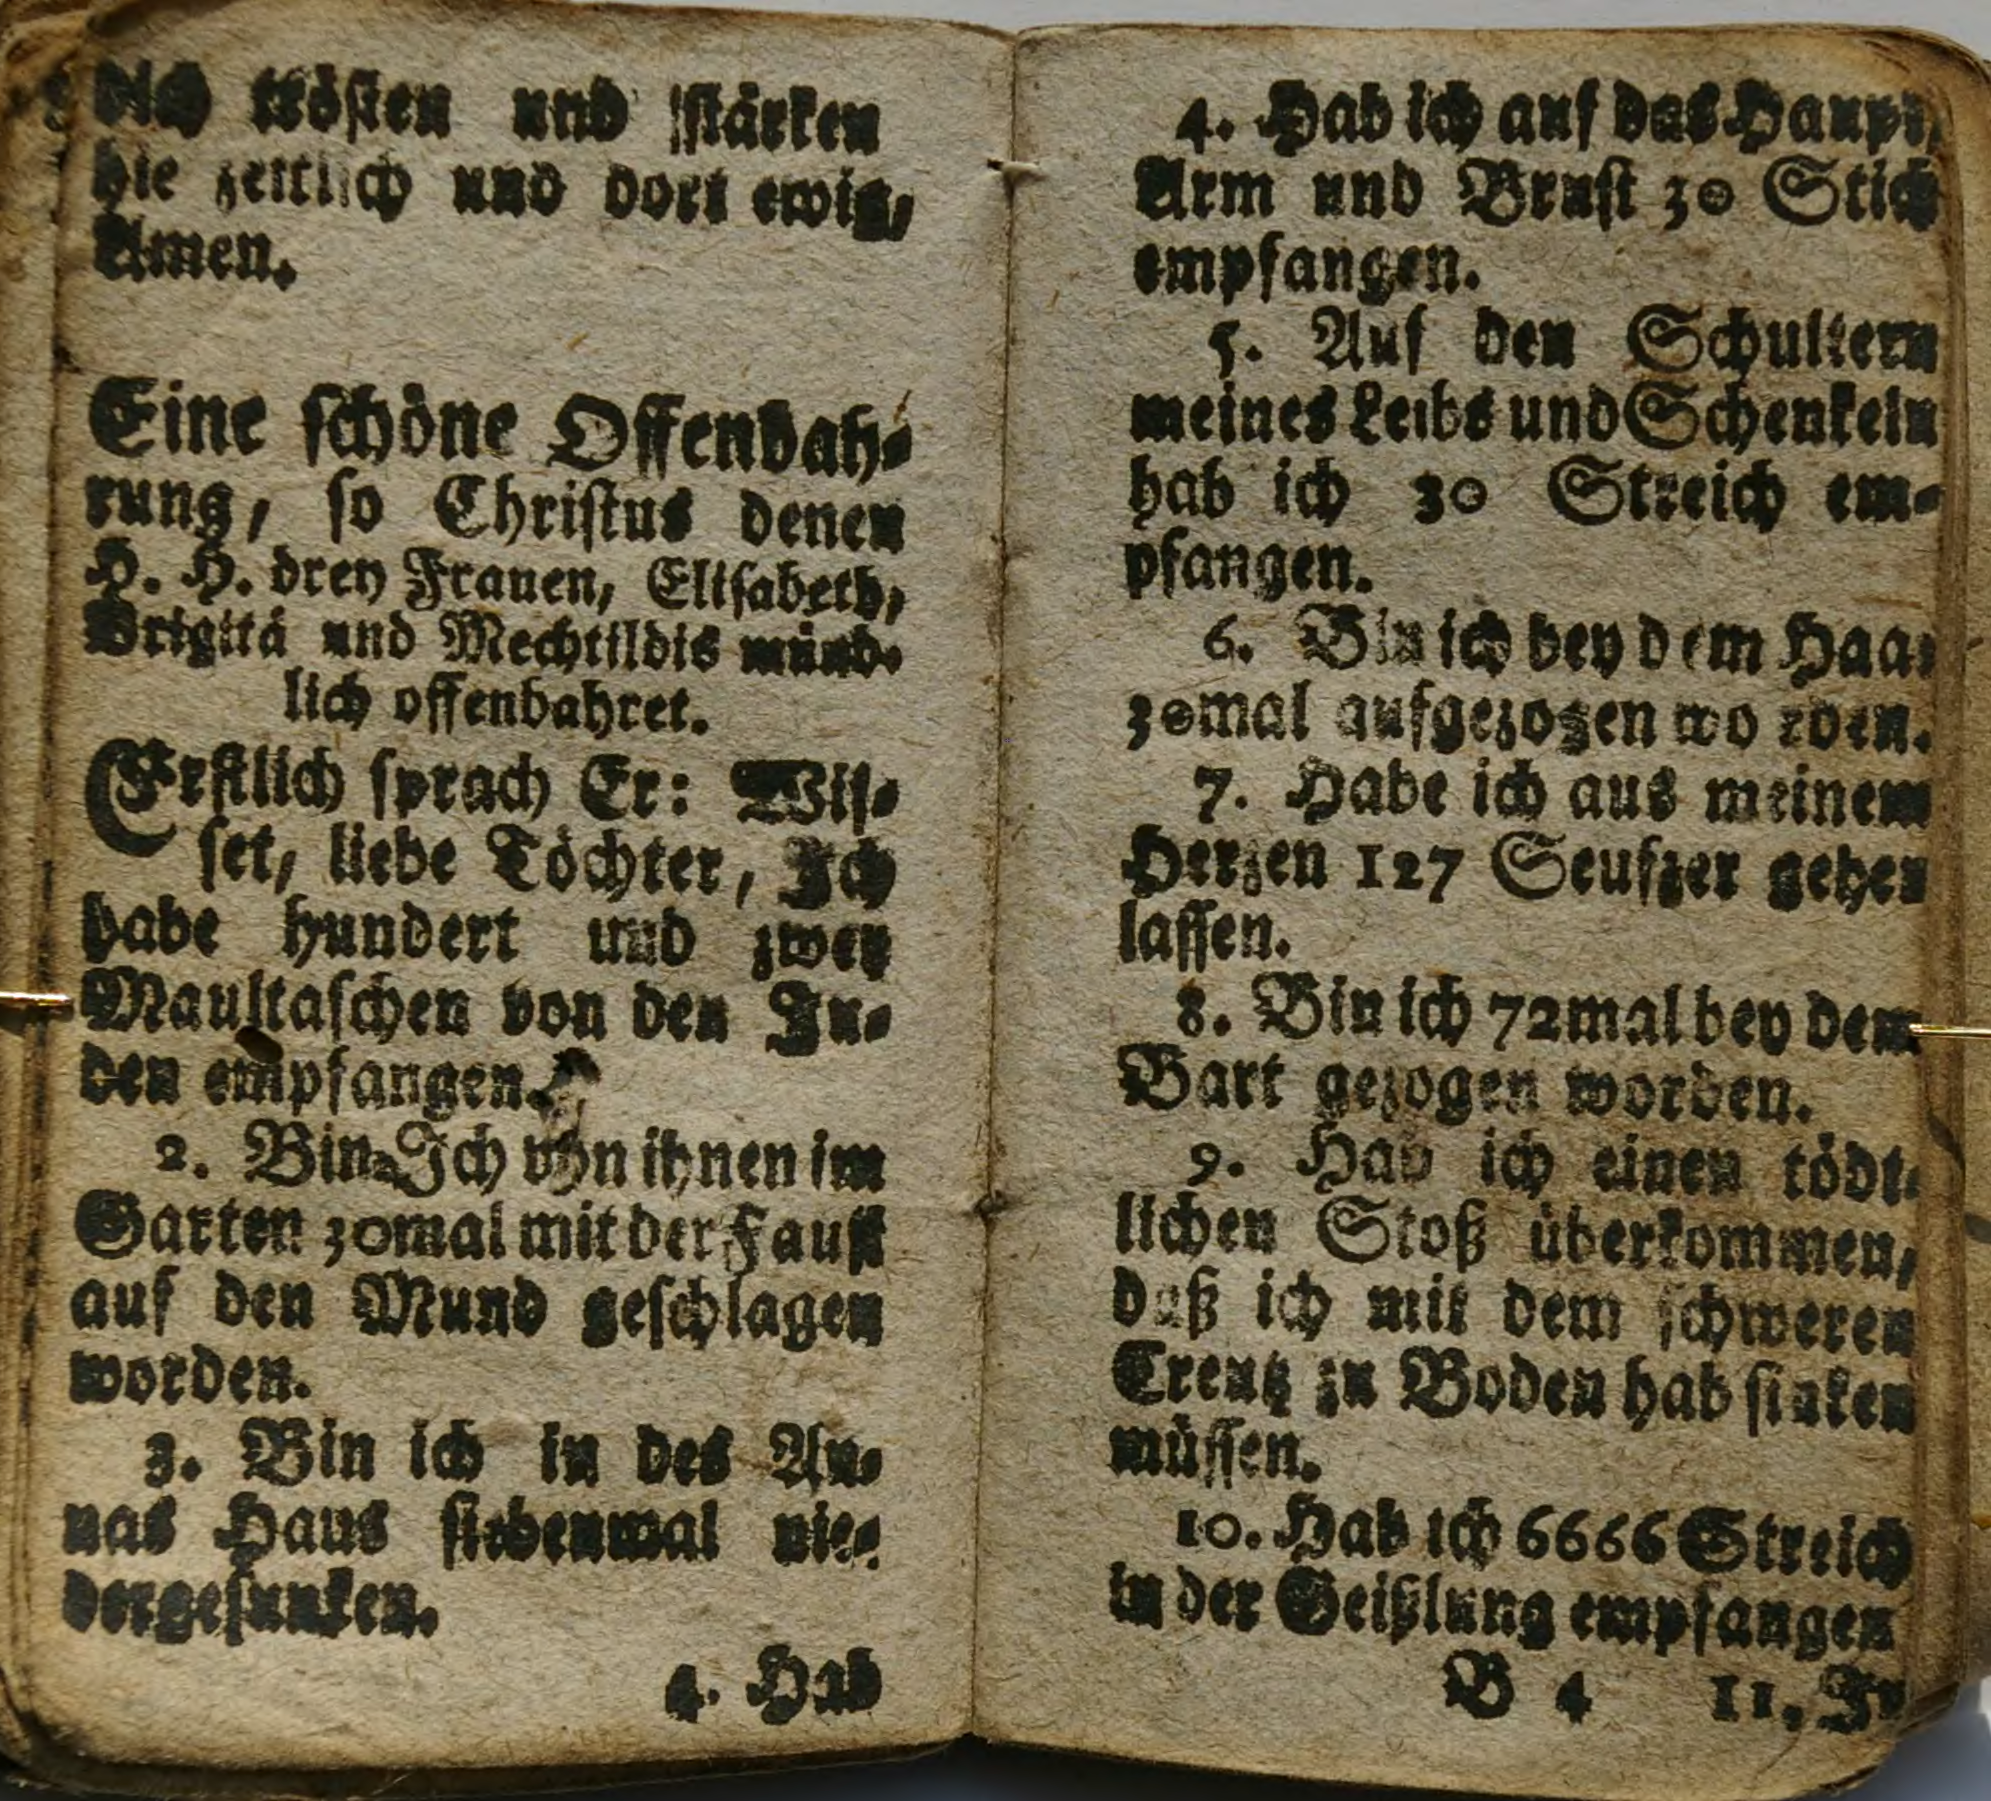 dich trösten und stärken
hie zeitlich und dort ewig,
Amen.
Eine schöne Offenbah-
rung, so Christus denen
H. H. drey Frauen, Elisabeth,
Brigitä und Mechtildis münd-
lich offenbahret.
Erstlich sprach Er: Wis-
set, liebe Töchter, Ich
habe hundert und zwey
Maultaschen von den Ju-
den empfangen.
2. Bin Ich von ihnen im
Garten 30mal mit der Faust
auf den Mund geschlagen
worden.
3. Bin ich in des An-
nas Haus siebenmal nie-
dergesunken.
4. Hab
4. Hab ich auf das Haupt,
Arm und Brust 30 Stich
empfangen.
5. Auf den Schultern
meines Leibs und Schenkeln
hab ich 30 Streich em-
pfangen.
6. Bin ich bey dem Haar
30mal aufgezogen worden.
7. Habe ich aus meinem
Herzen 127 Seufzer gehen
lassen.
8. Bin ich 72mal bey dem
Bart gezogen worden.
9. Hab ich einen tödt-
lichen Stoß überkommen,
daß ich mit dem schweren
Creutz zu Boden hab sinken
müssen.
10. Hab ich 6666 Streich
in der Geißlung empfangen
B 4 11. In